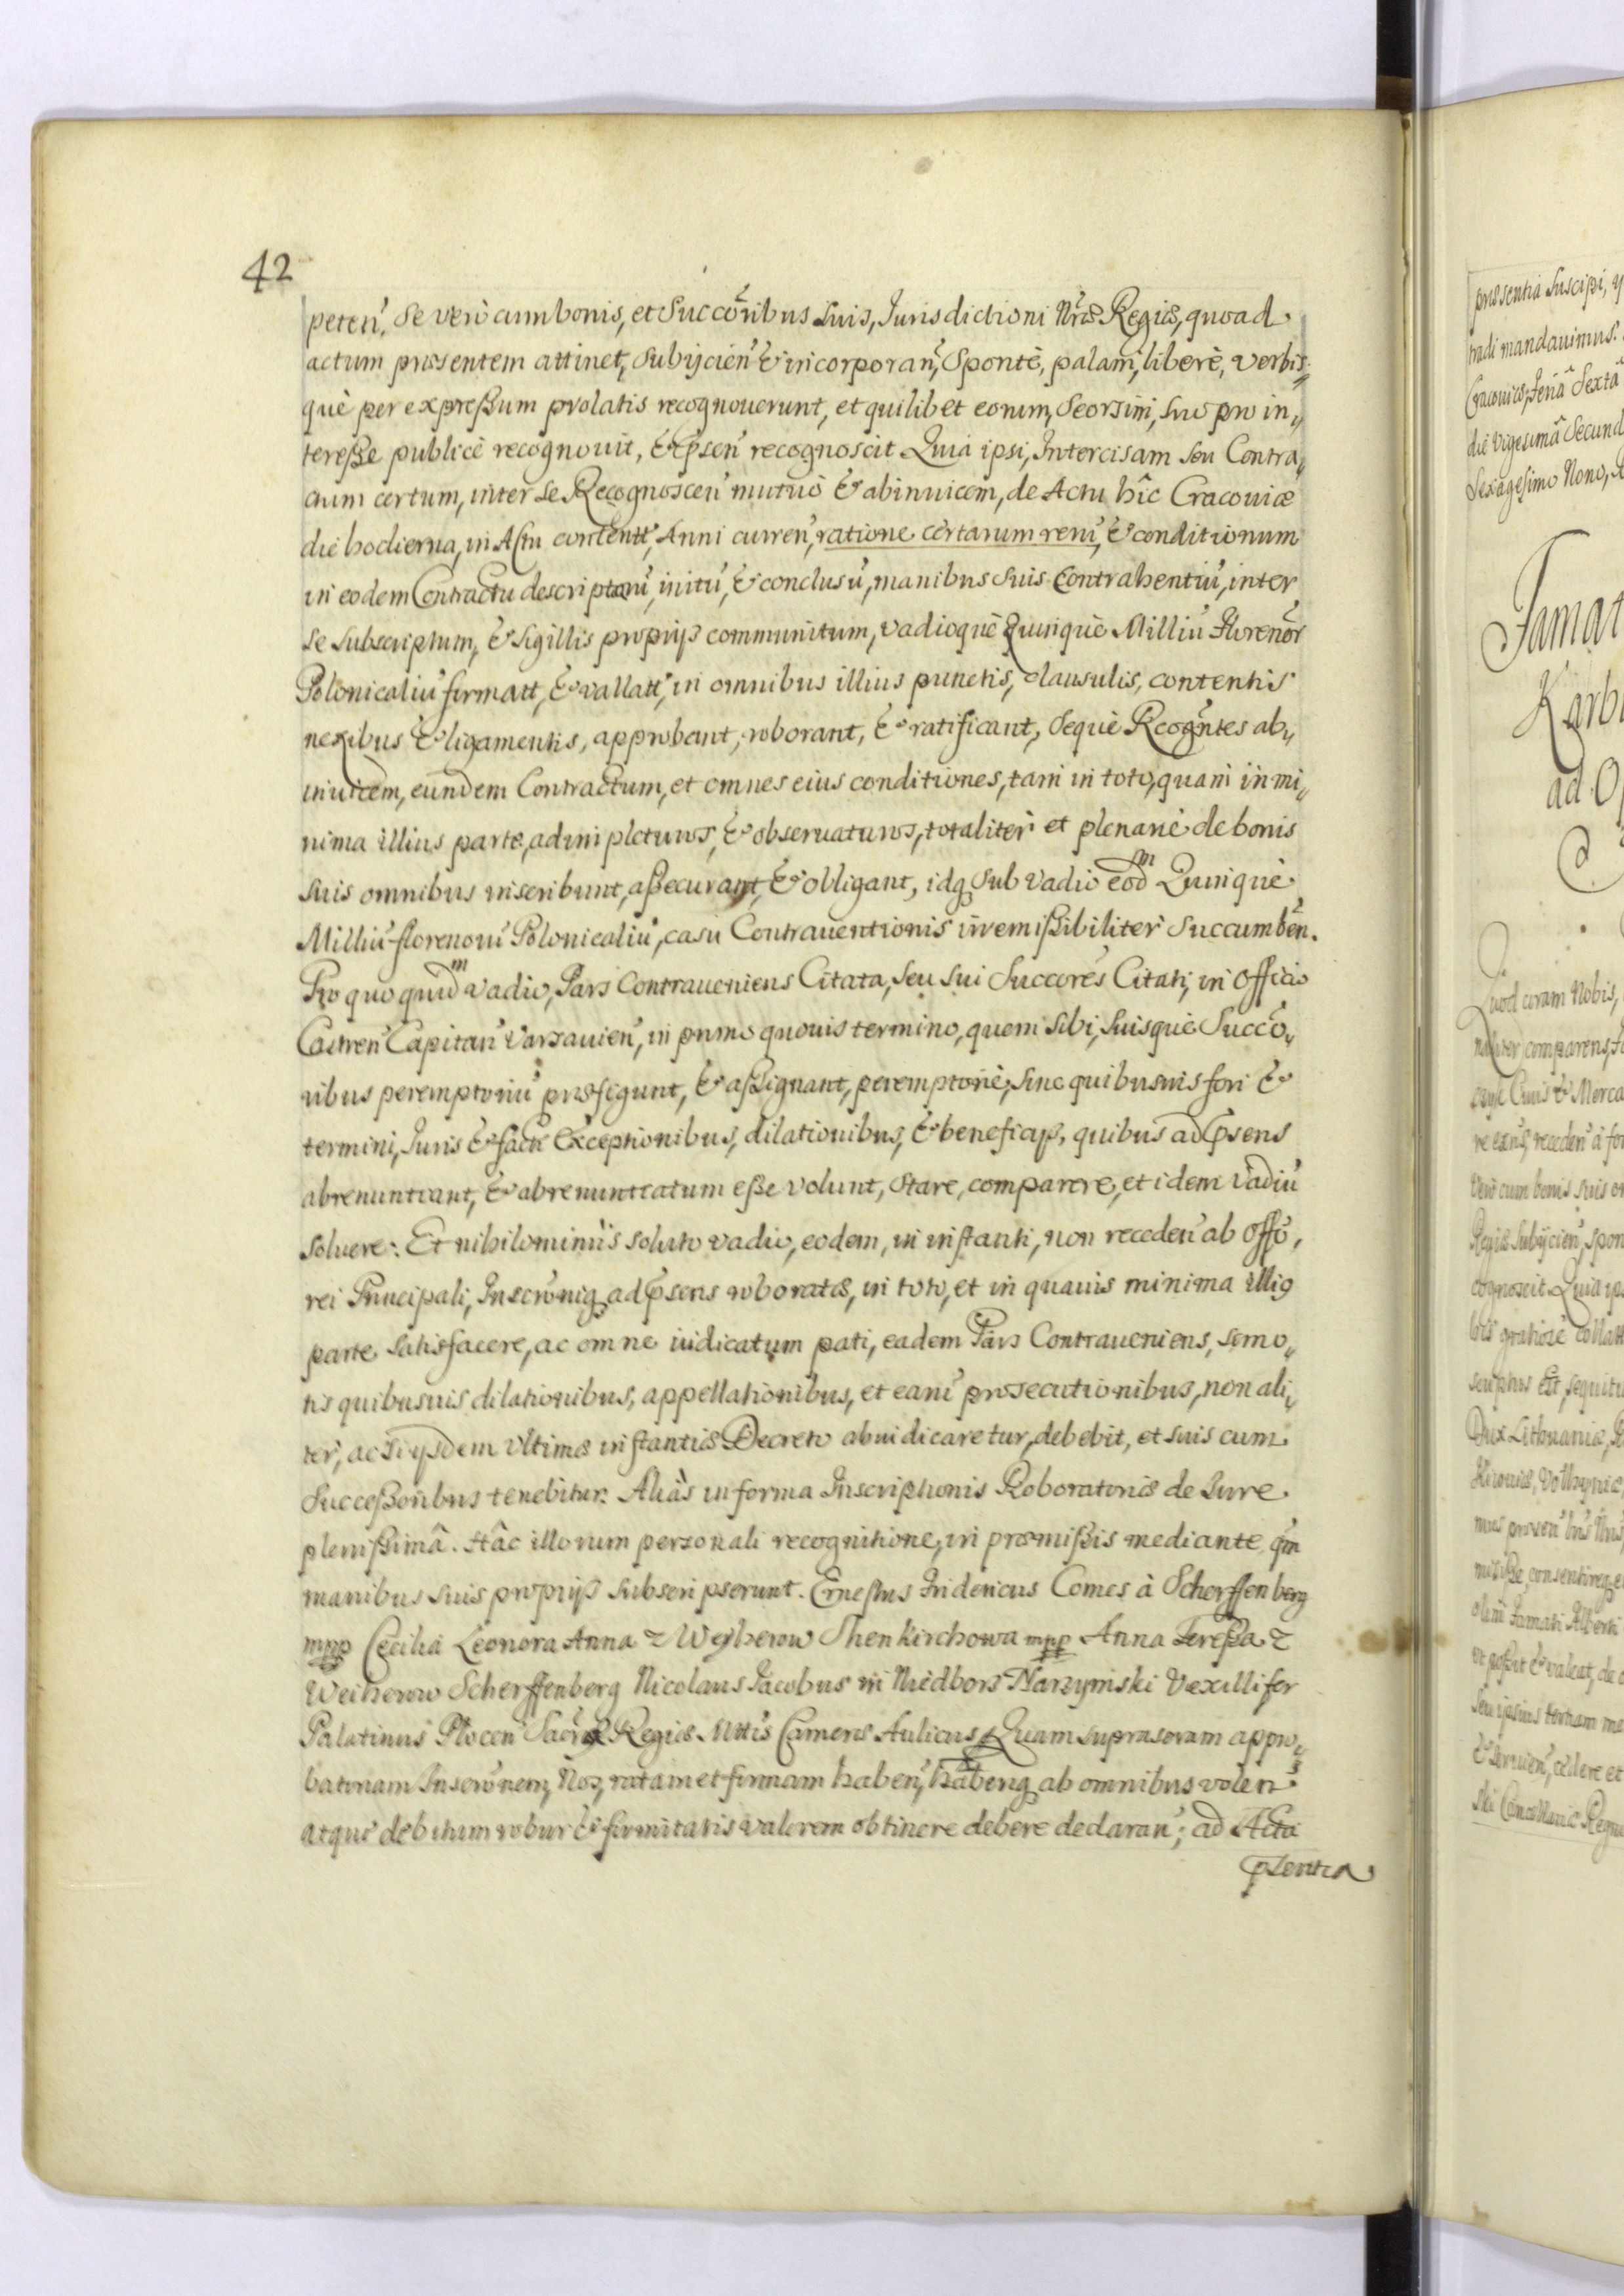 42
peten̄, Se verò cum bonis, et Succōribus suis, Jurisdictioni Nr̃æ Regiæ, quoad
actum præsentem attinet, subijcien̄ & incorporan̄, Spontè, palam, liberè, verbis
què per expreßum prolatis recognouerunt, et quilibet eorum, seorsim, suo pro in„
tereße publicè recognouit, & p̄sen̄ recognoscit Quia ipsi, Intercisam seu Contra„
ctum certum, inter se Recognoscen̄ mutuò & abinuicem, de Actu hîc Cracouiæ
die hodierna, in Astu contentt, Anni curren̄, ratione certarum rerū, & conditionum
in eodem Contractu descriptarū, initū, & conclusū, manibus suis Contrahentiū, inter
se subscriptum, & sigillis proprijs communitum, vadioquè Quinquè Milliū Florenōr
Polonicaliū firmatt, & vallatt, in omnibus illius punctis, clausulis, contentis
nexibus & ligamentis, approbant, roborant, & ratificant, Sequè Recogñtes ab„
inuicem, eundem Contractum, et omnes eius conditiones, tam in toto, quam in mi„
nima illius parte, adimpleturos, & obseruaturos, totaliter et plenariè de bonis
suis omnibus inscribunt, aßecurant, & obligant, idq sub vadio eodm Quinquè
Milliū florenorū Polonicaliū, casu Contrauentionis irremißibiliter succumbēn.
Pro quo quidm vadio, Pars Contraueniens Citata, seu sui Succōres Citati, in Officio
Castren̄ Capitan̄ Varsauien̄, in primo quouis termino, quem sibi, suisquè Succō„
ribus peremptoriū præfigunt, & aßignant, peremptoriè, sine quibusuis fori &
termini, Juris & facti Exceptionibus, dilationibus, & beneficijs, quibus ad p̄sens
abrenuntiant, & abrenuntiatum eße volunt, stare, comparere, et idem vadiū
soluere. Et nihilominùs soluto vadio, eodem, in instanti, non receden̄ ab Offō,
rei Principali, Inscrōniq ad p̄sens roboratæ, in toto, et in quauis minima illig
parte satisfacere, ac omne iudicatum pati, eadem Pars Contraueniens, semo„
tis quibusuis dilationibus, appellationibus, et earū prosecutionibus, non ali„
ter, ac si ijsdem vltimæ instantiæ Decreto abiudicaretur, debebit, et suis cum
Succeßoribus tenebitur. Aliàs in forma Inscriptionis Roboratoriæ de Iure
plenißimâ. Hâc illorum personali recognitione, in præmißis mediante qm
manibus suis proprijs subscripserunt. Ernestus Fridericus Comes à Scherffenberg
mpp Cecilia Leonora Anna z Weyherow Thenkirchowa mpp Anna Tereßa z
Weiherow Scherffenberg Nicolaus Jacobus in Niedbors Narzymski Vexillifer
Palatinus Plocen̄ Sacræ Regiæ Mttis Cameræ Aulicus Quam suprascrām appro„
batoriam Inscrōnem, Nos, ratam et firmam haben̄, habeng ab omnibus volen̄
atque debitum robur & firmitatis valorem obtinere debere declaran̄; ad Acta
p̄sentia
præsentia suscipi, 
tradi mandauimus.
Cracouiæ, Feriâ Sextâ
die Vigesimâ Secund
Sexagesimo Nono,
Famat
Karb
ad O
Quod coram Nobis,
comparens,
Ciuis & Merca
receden̄ à for
verò cum bonis suis
Regiæ subijcien̄, spon
cognoscit Quia
gratiose collatt
scriptus Est, sequitu
Dux Lithuaniæ,
Kiiouiæ, Volhyniæ,
olim Famati Alberti
vt poßit & valeat, de
seu ipsius
cedere et
Cancellariæ Regni